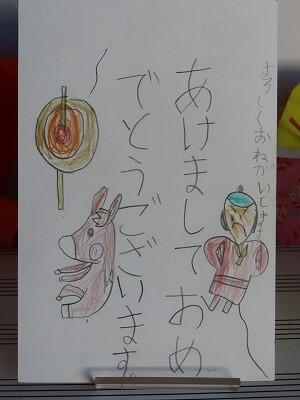 よろしくおねがいします
あけましておめ
でとうございます。